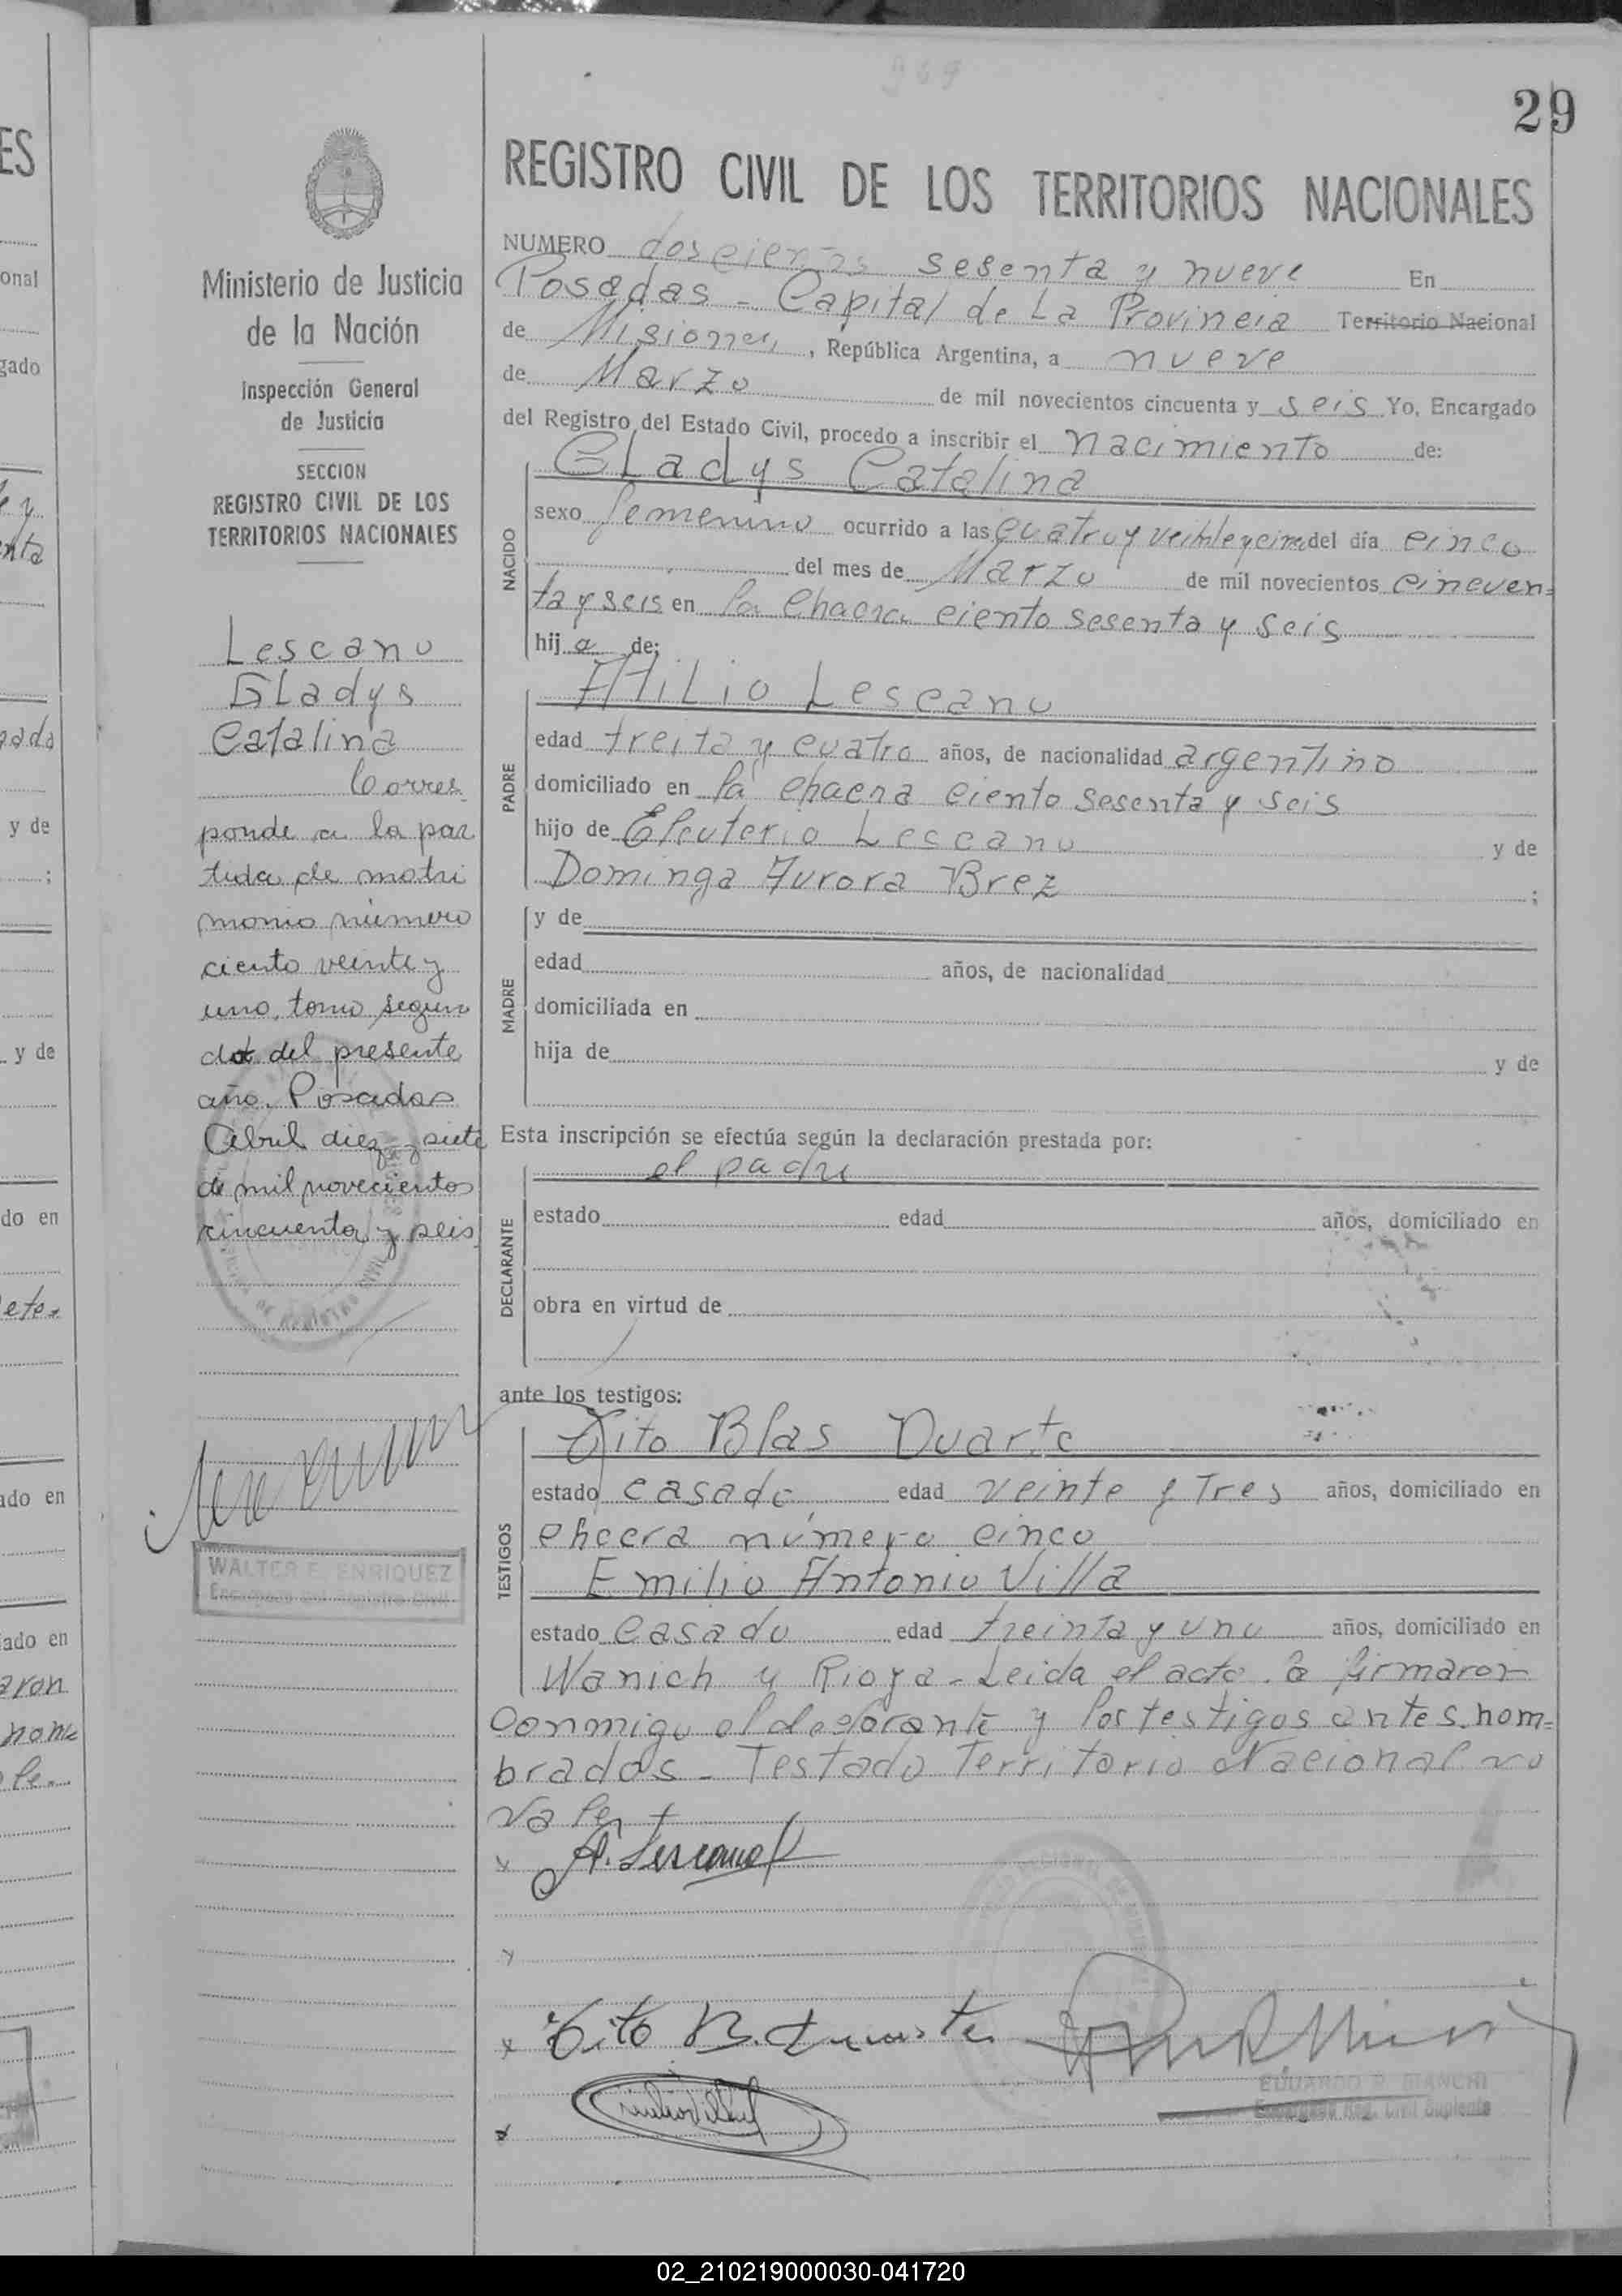 29
REGISTRO CIVIL DE LOS TERRITORIOS NACIONALES
NUMERO doscientos sesenta y nueve En
Posadas - Capital de La Provincia Territorio Nacional
de Misiones, República Argentina, a nueve
de Marzo de mil novecientos cincuenta y seis Yo, Encargado
del Registro del Estado Civil, procedo a inscribir el nacimiento de:
NACIDO
GLadys Catalina
sexo femenino ocurrido a las cuatro y veinte y cinco del día cinco
del mes de Marzo de mil novecientos cincuen=
ta y seis en la chacra ciento sesenta y seis
hija de:
PADRE
AtiLio Lescano
edad treita y cuatro años, de nacionalidad argentino
domiciliado en la chacra ciento sesenta y seis
hijo de Eleuterio Lescano y de
Dominga Aurora Brez ;
MADRE
y de
edad años, de nacionalidad
domiciliada en
hija de y de
Esta inscripción se efectúa según la declaración prestada por:
DECLARANTE
el padre
estado edad años, domiciliado en
obra en virtud de
ante los testigos:
TESTIGOS
Tito Blas Duarte
estado casado edad veinte y Tres años, domiciliado en
chacra número cinco
Emilio Antonio Villa
estado casado edad treinta y uno años, domiciliado en
Wanich y Rioja - Leida el acta la firmaron
Conmigo el declarante y los testigos antes nom=
brados - Testado Territorio Nacional no
vale
A. Lescano
Tito B. Duarte
EDUARDO R. BIANCHI
Encargado Reg. Civil Suplente
Ministerio de Justicia
de la Nación
Inspección General
de Justicia
SECCION
REGISTRO CIVIL DE LOS
TERRITORIOS NACIONALES
Lescano
GLadys
Catalina
Corres
ponde a la par
tida de matri
monio número
ciento veinte y
uno, tomo segun
do del presente
año. Posadas
Abril diez y siete
de mil novecientos
cincuenta y seis
WALTER E. ENRIQUEZ
Encargado del Registro Civil
02_210219000030-041720